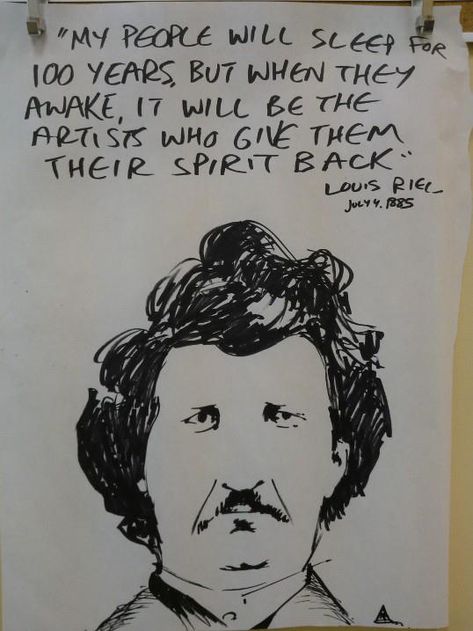 "MY PEOPLE WILL SLEEP FOR
100 YEARS, BUT WHEN THEY
AWAKE, IT WILL BE THE
ARTISTS WHO GIVE THEM
THEIR SPIRIT BACK"
LOUIS RIEL
JULY 4. 1885